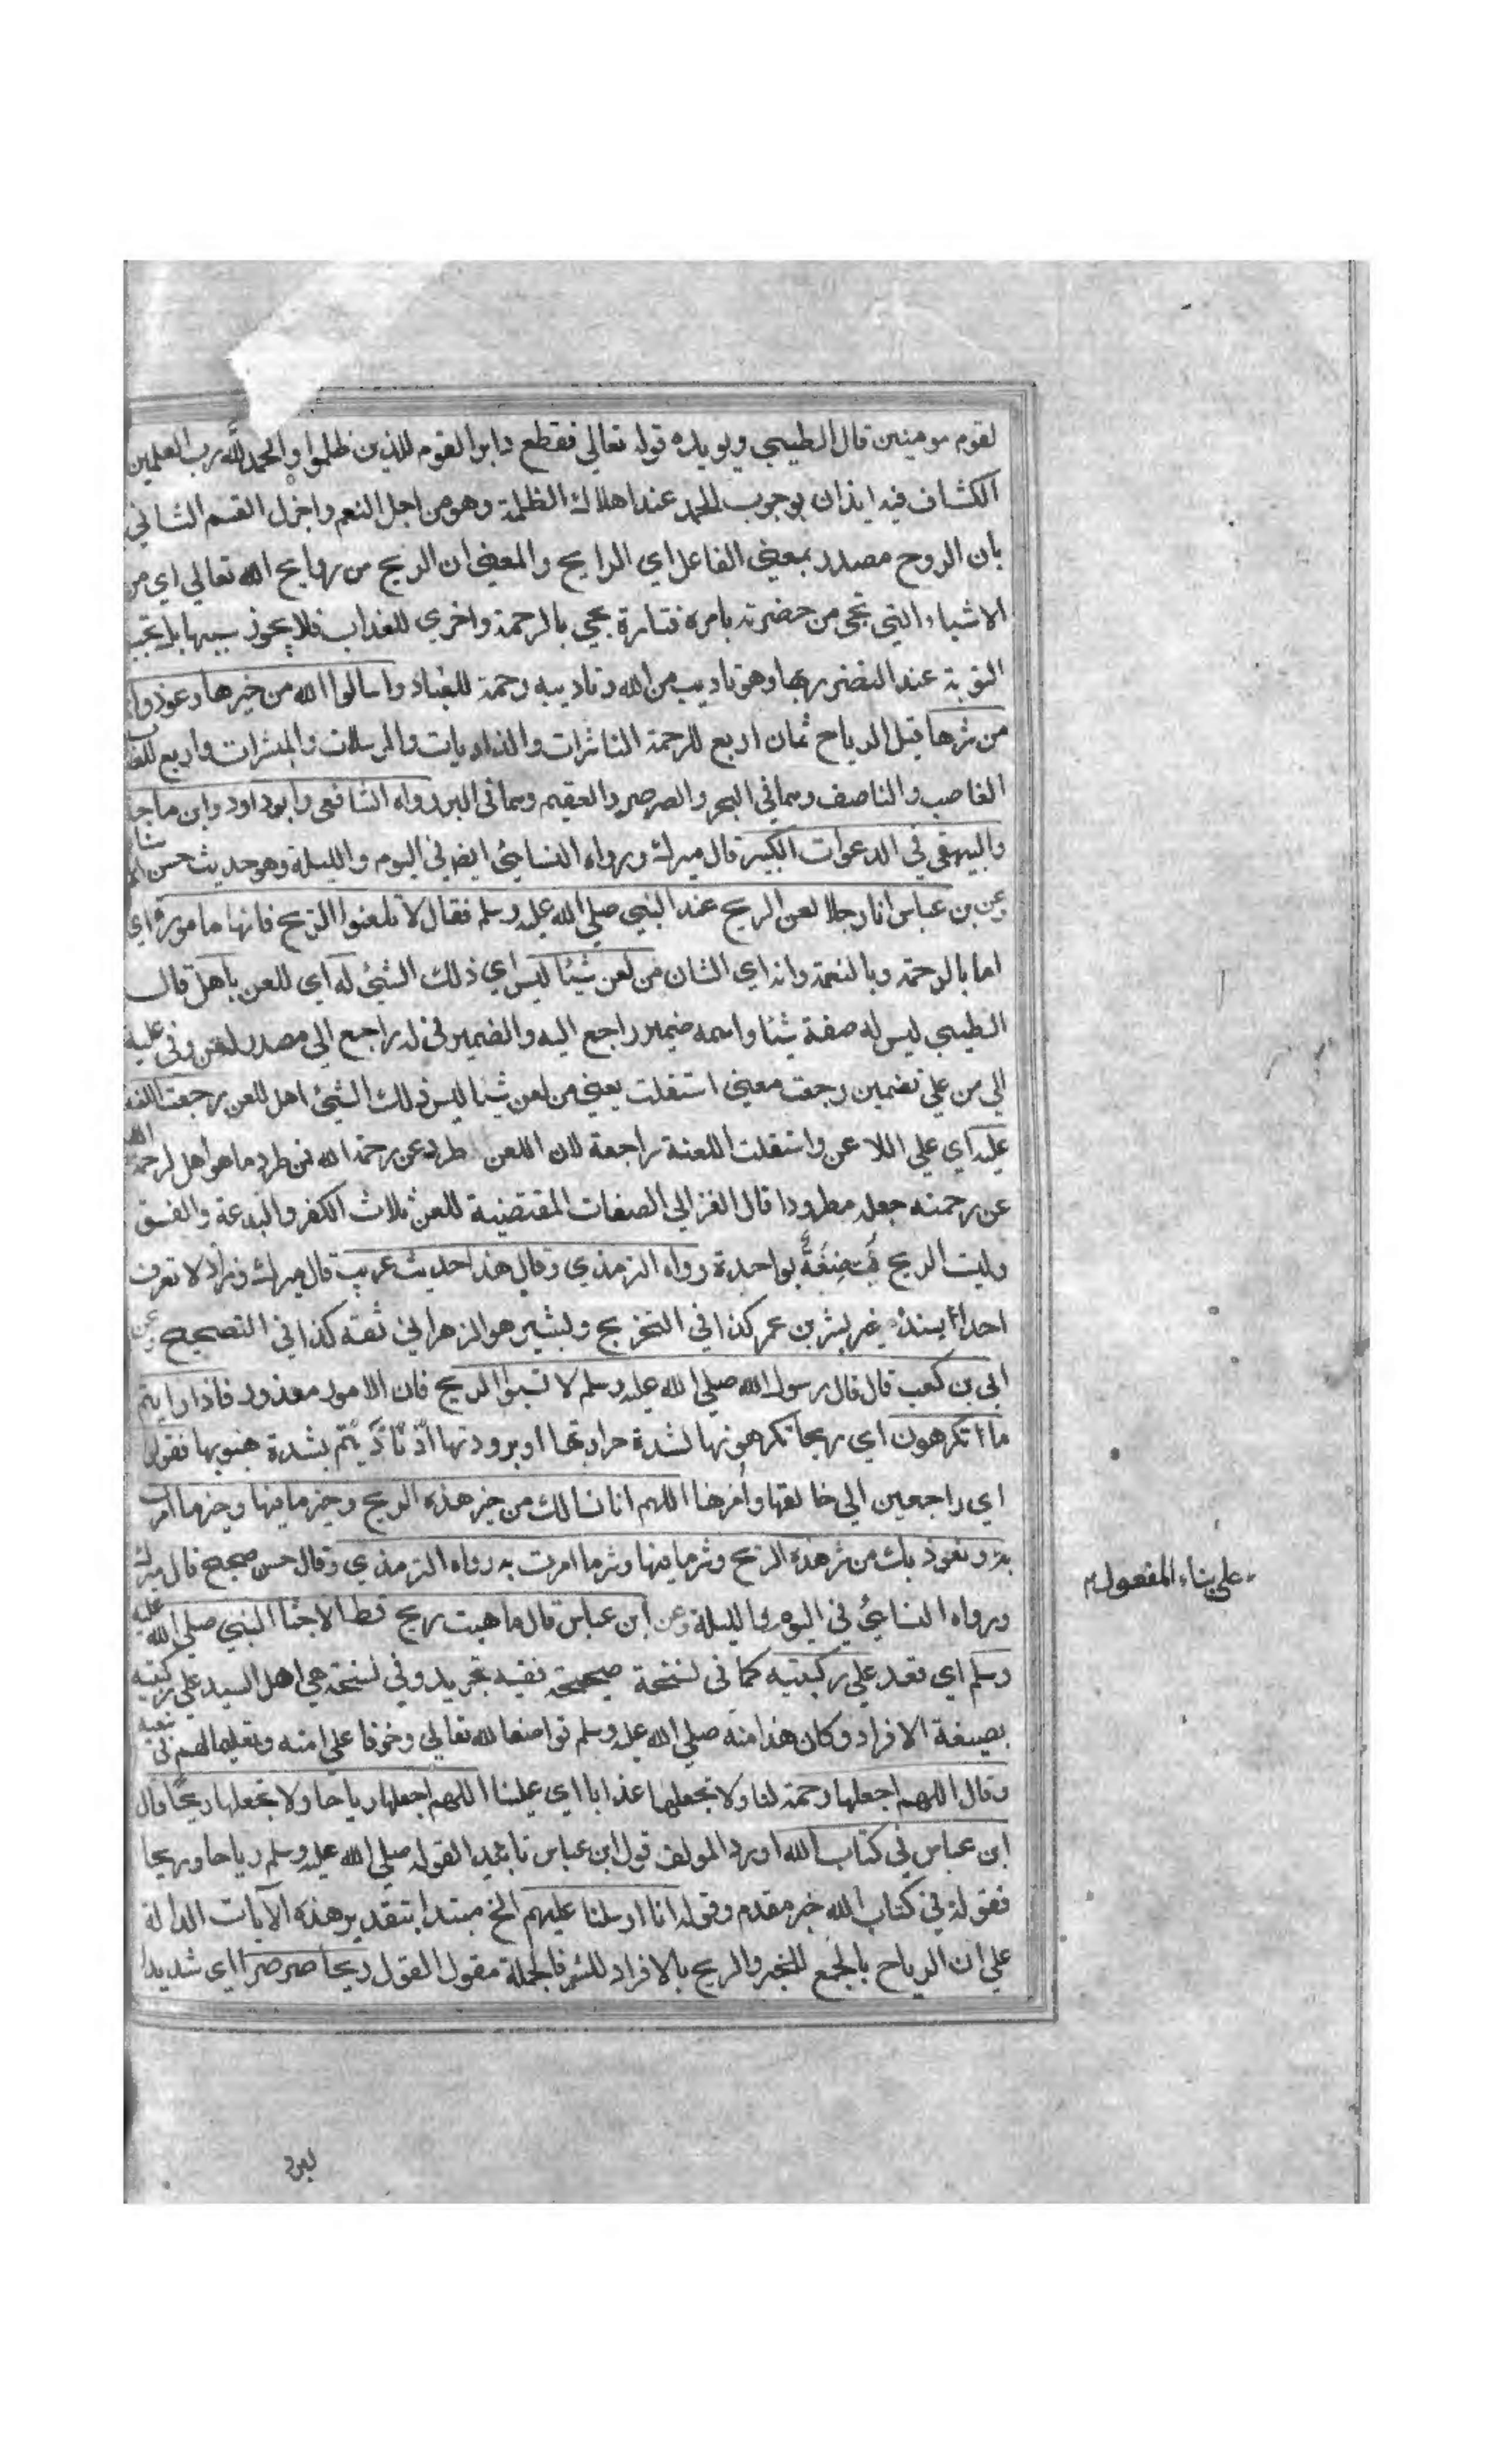 لقوم مومنين قال الطيبي ويويده قوله تعالي فقطع دابر القوم للذين ظلموا والحمد لله رب العلمين
الكشاف فيه ايذان بوجوب الحمد عند اهلاك الظلمة وهو من اجل النعم واجزل القسم الثاني
بان الروح مصدر بمعني الفاعل اي الرايح والمعني ان الريح من روايح الله تعالي اي من
الاشياء التي تجي من حضرته بامره فتارة تجي بالرحمة واخري للعذاب فلا يجوز سبها بل تجب
التوبة عند التضرر بها وهو تاديب من الله وتاديبه رحمة للعباد واسالوا الله من خيرها وعوذوا
من شرها قيل الرياح ثمان اربع للرحمة الناشرات والذاريات والمرسلات والمبشرات واربع للعذاب
الغاصب والناصف وهما في البحر والصرصر والعقيم وهما في البر رواه الشافعي وابوداود وابن ماجة
والبيهقي في الدعوات الكبير قال ميرك ورواه النسايئ ايضا في اليوم والليلة وهو حديث حسن
وعن بن عباس ان رجلا لعن الريح عند النبي صلي الله عليه وسلم فقال لا تلعنوا الريح فانها مامورة اي
اما بالرحمة وبالنعمة وانه اي الشان من لعن شيئا ليس اي ذلك الشيئ له اي للعن باهل قال
الطيبي ليس له صفة شيئا واسمه ضمير راجع اليه والضمير في له راجع الي مصدر لعن وفي عليه
الي من علي تضمين رجعت معني استقلت يعني من لعن شيئا ليس ذلك الشيئ اهل للعن رجعت اللعنة
عليه اي علي اللاعن واستقلت اللعنة راجعة لان اللعن طرد عن رحمة الله فمن طرد ما هو اهل لرحمة الله
عن رحمته جعله مطرودا قال الغزالي الصفات المقتضية للعن ثلاث الكفر والبدعة والفسق
وليت الريح متصفة بواحدة رواه الترمذي وقال هذا حديث غريب قال ميرك وزاد لا نعرف
احدا اسنده غير بشر بن عمر كذا في التخريج وبشير هو الزهراني ثقة كذا في التصحيح عن
ابي بن كعب قال قال رسول الله صلي الله عليه وسلم لا تسبوا الريح فان الامور معذور فاذا رايتم
ما تكرهون اي ريحا تكرهونها لشدة حرارتها او برودتها او تاذيتم بشدة هبوبها فقولوا
اي راجعين الي خالقها وامرها اللهم انا نسالك من خير هذه الريح وخير ما فيها وخير ما امرت
به ونعوذ بك من شر هذه الريح وشر ما فيها وشر ما امرت به رواه الترمذي وقال حسن صحيح قال ميرك
ورواه النسايئ في اليوم والليلة وعن ابن عباس قال ما هبت ريح قط الا جثا النبي صلي الله عليه
وسلم اي قعد علي ركبتيه كما في نسخة صحيحة ففيه تجريد وفي نسخة هي اصل السيد علي ركبته
بصيغة الافراد وكان هذا منه صلي الله عليه وسلم تواضعا لله تعالي وخوفا علي امته وتعليما لهم في تبعيته
وقال اللهم اجعلها رحمة لنا ولا تجعلها عذابا اي علينا اللهم اجعلها رياحا ولا تجعلها ريحا قال
ابن عباس في كتاب الله اورد المولف قول ابن عباس تاييدا لقوله صلي الله عليه وسلم رياحا وريحا
فقوله في كتاب الله خبر مقدم وقوله انا ارسلنا عليهم الخ مبتدا بتقدير هذه الآيات الدالة
علي ان الرياح بالجمع للخير والريح بالافراد للشر فالجملة مقول القول ريحا صرصرا اي شديدا
على بناء المفعول م
لبرد